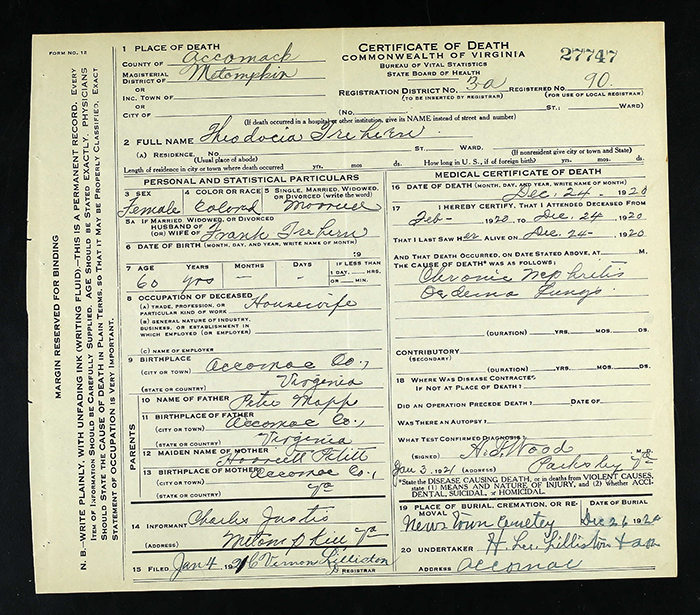 FORM NO. 12
1 PLACE OF DEATH
COUNTY OF Accomack
MAGISTERIAL DISTRICT OF Metompkin
OR
INC. TOWN OF
OR
CITY OF
CERTIFICATE OF DEATH
COMMONWEALTH OF VIRGINIA
BUREAU OF VITAL STATISTICS
STATE BOARD OF HEALTH
27747
REGISTRATION DISTRICT NO. 3a REGISTERED NO. 90
(TO BE INSERTED BY REGISTRAR) (FOR USE OF LOCAL REGISTRAR)
(NO. ST. WARD)
(If death occurred in a hospital or other institution, give its NAME instead of street and number)
2 FULL NAME Theodocia Trehern
(A) RESIDENCE. NO. ST. WARD.
(Usual place of abode) (If nonresident give city or town and State)
Length of residence in city or town where death occurred yrs. mos. ds. How long in U. S., if of foreign birth? yrs. mos. ds.
PERSONAL AND STATISTICAL PARTICULARS
3 SEX 4 COLOR OR RACE 5 SINGLE, MARRIED, WIDOWED, OR DIVORCED (write the word)
Female Colord
5A IF MARRIED, WIDOWED, OR DIVORCED
HUSBAND OF
(OR) WIFE OF Frank Trehern
6 DATE OF BIRTH (MONTH, DAY, AND YEAR, WRITE NAME OF MONTH)
19
7 AGE YEARS MONTHS DAYS IF LESS THAN
1 DAY, HRS.
OR MIN.
60 yrs - -
8 OCCUPATION OF DECEASED
(A) TRADE, PROFESSION, OR PARTICULAR KIND OF WORK Housewife
(B) GENERAL NATURE OF INDUSTRY, BUSINESS, OR ESTABLISHMENT IN WHICH EMPLOYED (OR EMPLOYER)
(C) NAME OF EMPLOYER
9 BIRTHPLACE
(CITY OR TOWN) Accomac Co.,
(STATE OR COUNTRY) Virginia
PARENTS
10 NAME OF FATHER Peter Mapp
11 BIRTHPLACE OF FATHER
(CITY OR TOWN) Accomac Co.,
(STATE OR COUNTRY) Virginia
12 MAIDEN NAME OF MOTHER
13 BIRTHPLACE OF MOTHER
(CITY OR TOWN) Accomac Co.,
(STATE OR COUNTRY) Va
14 INFORMANT Charlie Justis
(ADDRESS) Va
15 FILED Jan 4 1921 Vernon Lilliston
REGISTRAR
MEDICAL CERTIFICATE OF DEATH
16 DATE OF DEATH (MONTH, DAY, AND YEAR, WRITE NAME OF MONTH)
Dec. 24 - 1920
17 I HEREBY CERTIFY, THAT I ATTENDED DECEASED FROM
Feb - 1920 TO Dec. 24 1920
THAT I LAST SAW Her ALIVE ON Dec. 24 - 1920
AND THAT DEATH OCCURRED, ON DATE STATED ABOVE, AT M.
THE CAUSE OF DEATH* WAS AS FOLLOWS:
Chronic Nephritis
Oedema Lungs
(DURATION) YRS. MOS. DS.
CONTRIBUTORY
(SECONDARY)
(DURATION) YRS. MOS. DS.
18 WHERE WAS DISEASE CONTRACTED
IF NOT AT PLACE OF DEATH?
DID AN OPERATION PRECEDE DEATH? DATE OF
WAS THERE AN AUTOPSY?
WHAT TEST CONFIRMED DIAGNOSIS?
(SIGNED) Wood M.D.
Jan 3, 1921 (ADDRESS) Parksley Va
*State the DISEASE CAUSING DEATH, or in deaths from VIOLENT CAUSES, state (1) MEANS AND NATURE OF INJURY, and (2) Whether ACCIDENTAL, SUICIDAL, or HOMICIDAL.
19 PLACE OF BURIAL, CREMATION, OR REMOVAL DATE OF BURIAL
Newstown Cemetey Dec 26 1920
20 UNDERTAKER H. Lee Lilliston
ADDRESS Accomac
MARGIN RESERVED FOR BINDING
N. B.—WRITE PLAINLY, WITH UNFADING INK (WRITING FLUID).—THIS IS A PERMANENT RECORD. EVERY
ITEM OF INFORMATION SHOULD BE CAREFULLY SUPPLIED. AGE SHOULD BE STATED EXACTLY. PHYSICIANS
SHOULD STATE THE CAUSE OF DEATH IN PLAIN TERMS, SO THAT IT MAY BE PROPERLY CLASSIFIED. EXACT
STATEMENT OF OCCUPATION IS VERY IMPORTANT.